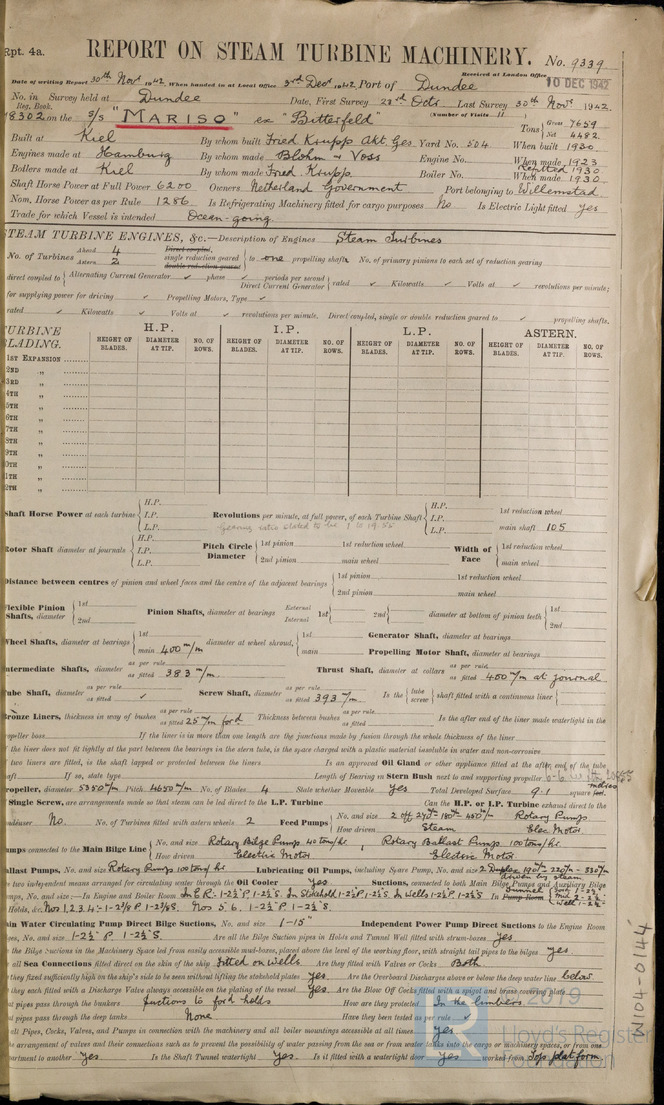 Rpt. 4a.
REPORT ON STEAM TURBINE MACHINERY. No. 9339
Received at London Office
10 DEC 1942
Date of writing Report 30th Novr 1942. When handed in at Local Office 3rd Decr 1942 Port of Dundee
No. in Reg. Book. Survey held at Dundee Date, First Survey 28th Octr. Last Survey 30th Novr 1942
(Number of Visits 11)
8302 on the s/s "MARISO" ex "Bitterfeld" Tons Gross 7659 Net 4482
Built at Kiel By whom built Fried Krupp Akt. Ges Yard No. 504 When built 1930
Engines made at Hamburg By whom made Blohm & Voss Engine No. When made 1923
Refitted 1930
Boilers made at Kiel By whom made Fried. Krupp. Boiler No. When made 1930
Shaft Horse Power at Full Power 6200 Owners Netherland Government Port belonging to Willemstad
Nom. Horse Power as per Rule 1286 Is Refrigerating Machinery fitted for cargo purposes No Is Electric Light fitted Yes
Trade for which Vessel is intended Ocean-going.
STEAM TURBINE ENGINES, &c.—Description of Engines Steam Turbines
No. of Turbines Ahead 4 Astern 2 Direct coupled, single reduction geared double reduction geared to one propelling shaft. No. of primary pinions to each set of reduction gearing
direct coupled to Alternating Current Generator ✓ phase ✓ periods per second Direct Current Generator rated ✓ Kilowatts ✓ Volts at ✓ revolutions per minute;
for supplying power for driving ✓ Propelling Motors, Type ✓
rated ✓ Kilowatts ✓ Volts at ✓ revolutions per minute. Direct coupled, single or double reduction geared to ✓ propelling shafts.
TURBINE BLADING. H.P. I.P. L.P. ASTERN.
HEIGHT OF BLADES. DIAMETER AT TIP. NO. OF ROWS. HEIGHT OF BLADES. DIAMETER AT TIP. NO. OF ROWS. HEIGHT OF BLADES. DIAMETER AT TIP. NO. OF ROWS. HEIGHT OF BLADES. DIAMETER AT TIP. NO. OF ROWS.
1ST EXPANSION
2ND „
3RD „
4TH „
5TH „
6TH „
7TH „
8TH „
9TH „
0TH „
1TH „
2TH „
Shaft Horse Power at each turbine H.P. I.P. L.P. Revolutions per minute, at full power, of each Turbine Shaft H.P. I.P. L.P. 1st reduction wheel main shaft 105
Gearing ratio stated to be 1 to 19.55
Rotor Shaft diameter at journals H.P. I.P. L.P. Pitch Circle Diameter 1st pinion 2nd pinion 1st reduction wheel main wheel Width of Face 1st reduction wheel main wheel
Distance between centres of pinion and wheel faces and the centre of the adjacent bearings 1st pinion 2nd pinion 1st reduction wheel main wheel
Flexible Pinion Shafts, diameter 1st 2nd Pinion Shafts, diameter at bearings External Internal 1st 2nd diameter at bottom of pinion teeth 1st 2nd
Wheel Shafts, diameter at bearings 1st main 400 m/m diameter at wheel shroud, 1st main Generator Shaft, diameter at bearings Propelling Motor Shaft, diameter at bearings
Intermediate Shafts, diameter as per rule as fitted 383 m/m. Thrust Shaft, diameter at collars as per rule as fitted 400 m/m at journal
Tube Shaft, diameter as per rule as fitted ✓ Screw Shaft, diameter as per rule as fitted 393 m/m Is the tube screw shaft fitted with a continuous liner
Bronze Liners, thickness in way of bushes as per rule as fitted 25 m/m ford Thickness between bushes as per rule as fitted Is the after end of the liner made watertight in the
propeller boss If the liner is in more than one length are the junctions made by fusion through the whole thickness of the liner
If the liner does not fit tightly at the part between the bearings in the stern tube, is the space charged with a plastic material insoluble in water and non-corrosive
If two liners are fitted, is the shaft lapped or protected between the liners Is an approved Oil Gland or other appliance fitted at the after end of the tube
shaft If so, state type Length of Bearing in Stern Bush next to and supporting propeller
Propeller, diameter 5350 m/m Pitch 4650 m/m No. of Blades 4 State whether Moveable yes Total Developed Surface 9.1 square metres
Single Screw, are arrangements made so that steam can be led direct to the L.P. Turbine Can the H.P. or I.P. Turbine exhaust direct to the
condenser No. No. of Turbines fitted with astern wheels 2 Feed Pumps No. and size 2 off 270 m/m - 180 m/m - 450 m/m Rotary Pumps
How driven Steam Elec Motor
Pumps connected to the Main Bilge Line No. and size Rotary Bilge Pumps 40 tons/hr, Rotary Ballast Pumps 100 tons/hr.
How driven Electric Motor Electric Motor
Ballast Pumps, No. and size Rotary Pumps 100 tons/hr Lubricating Oil Pumps, including Spare Pump, No. and size 2 Duplex 190 m/m - 220 m/m - 330 m/m driven by steam
Are two independent means arranged for circulating water through the Oil Cooler Yes Suctions, connected to both Main Bilge Pumps and Auxiliary Bilge
Pumps, No. and size:—In Engine and Boiler Room In E.R. 1-2½"P. 1-2½"S. In Stokehold 1-2½"P 1-2½"S In Wells 1-2½"P 1-2½"S In Pump Room
Holds, &c. Nos 1, 2, 3, 4 - 1-2½"P 1-2½"S. Nos 5, 6. 1-2½"P 1-2½"S.
Main Water Circulating Pump Direct Bilge Suctions, No. and size 1-15" Independent Power Pump Direct Suctions to the Engine Room
Bilges, No. and size 1-2½"P 1-2½"S. Are all the Bilge Suction pipes in Holds and Tunnel Well fitted with strum-boxes Yes
Are the Bilge Suctions in the Machinery Space led from easily accessible mud-boxes, placed above the level of the working floor, with straight tail pipes to the bilges yes
Are all Sea Connections fitted direct on the skin of the ship fitted on wells Are they fitted with Valves or Cocks Both
Are they fixed sufficiently high on the ship's side to be seen without lifting the stokehold plates Yes Are the Overboard Discharges above or below the deep water line below
Are they each fitted with a Discharge Valve always accessible on the plating of the vessel Yes. Are the Blow Off Cocks fitted with a spigot and brass covering plate
What pipes pass through the bunkers Suctions to ford holds How are they protected In the limbers
What pipes pass through the deep tanks None. Have they been tested as per rule ✓
Are all Pipes, Cocks, Valves, and Pumps in connection with the machinery and all boiler mountings accessible at all times Yes
Is the arrangement of valves and their connections such as to prevent the possibility of water passing from the sea or from water tanks into the cargo or machinery spaces, or from one
compartment to another Yes. Is the Shaft Tunnel watertight Yes. Is it fitted with a watertight door Yes worked from Top platform
W104-0144
© 2019
Lloyd's Register
Foundation